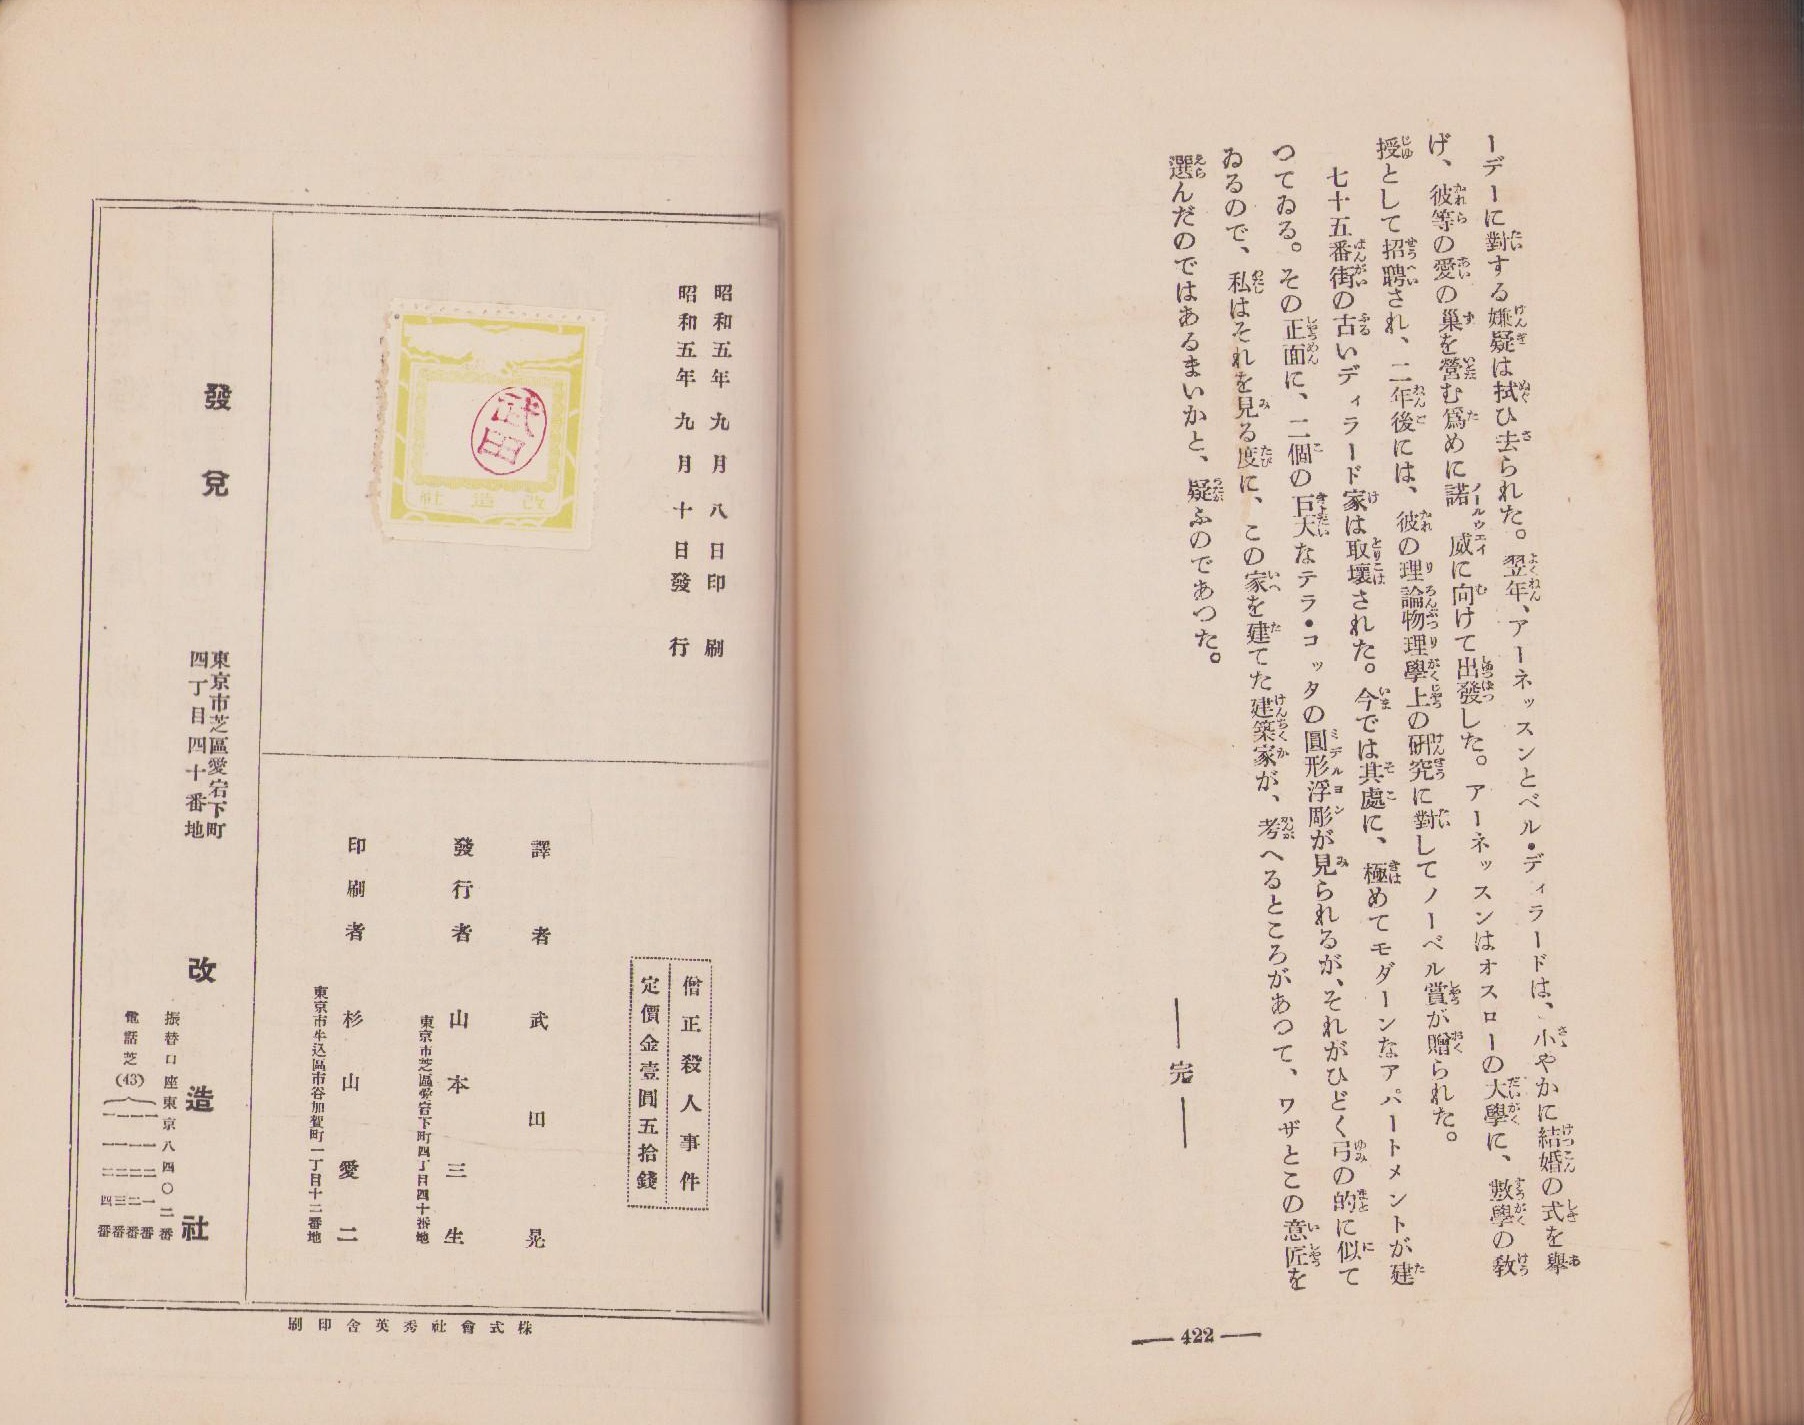 ーデーに對する嫌疑は拭ひ去られた。翌年、アーネッスンとベル・ディラードは、小やかに結婚の式を擧
げ、彼等の愛の巢を營む爲めに諾威に向けて出發した。アーネッスンはオスローの大學に、數學の敎
授として招聘され、二年後には、彼の理論物理學上の硏究に對してノーベル賞が贈られた。
七十五番街の古いディラード家は取壞された。今では其處に、極めてモダーンなアパートメントが建
つてゐる。その正面に、二個の巨大なテラ・コッタの圓形浮彫が見られるが、それがひどく弓の的に似て
ゐるので、私はそれを見る度に、この家を建てた建築家が、考へるところがあつて、ワザとこの意匠を
選んだのではあるまいかと、疑ふのであつた。
――完――
― 422 ―
昭和五年九月八日印刷
昭和五年九月十日發行
改造社
武田
僧正殺人事件
定價金壹圓五拾錢
譯者 武田晃
發行者 山本三生
東京市芝區愛宕下町四丁目四十番地
印刷者 杉山愛二
東京市牛込區市谷加賀町一丁目十二番地
發兌
東京市芝區愛宕下町
四丁目四十番地
改造社
振替口座東京八四〇二番
電話芝(43)
一一二一番
一一二二番
一一二三番
一一二四番
株式會社秀英舍印刷